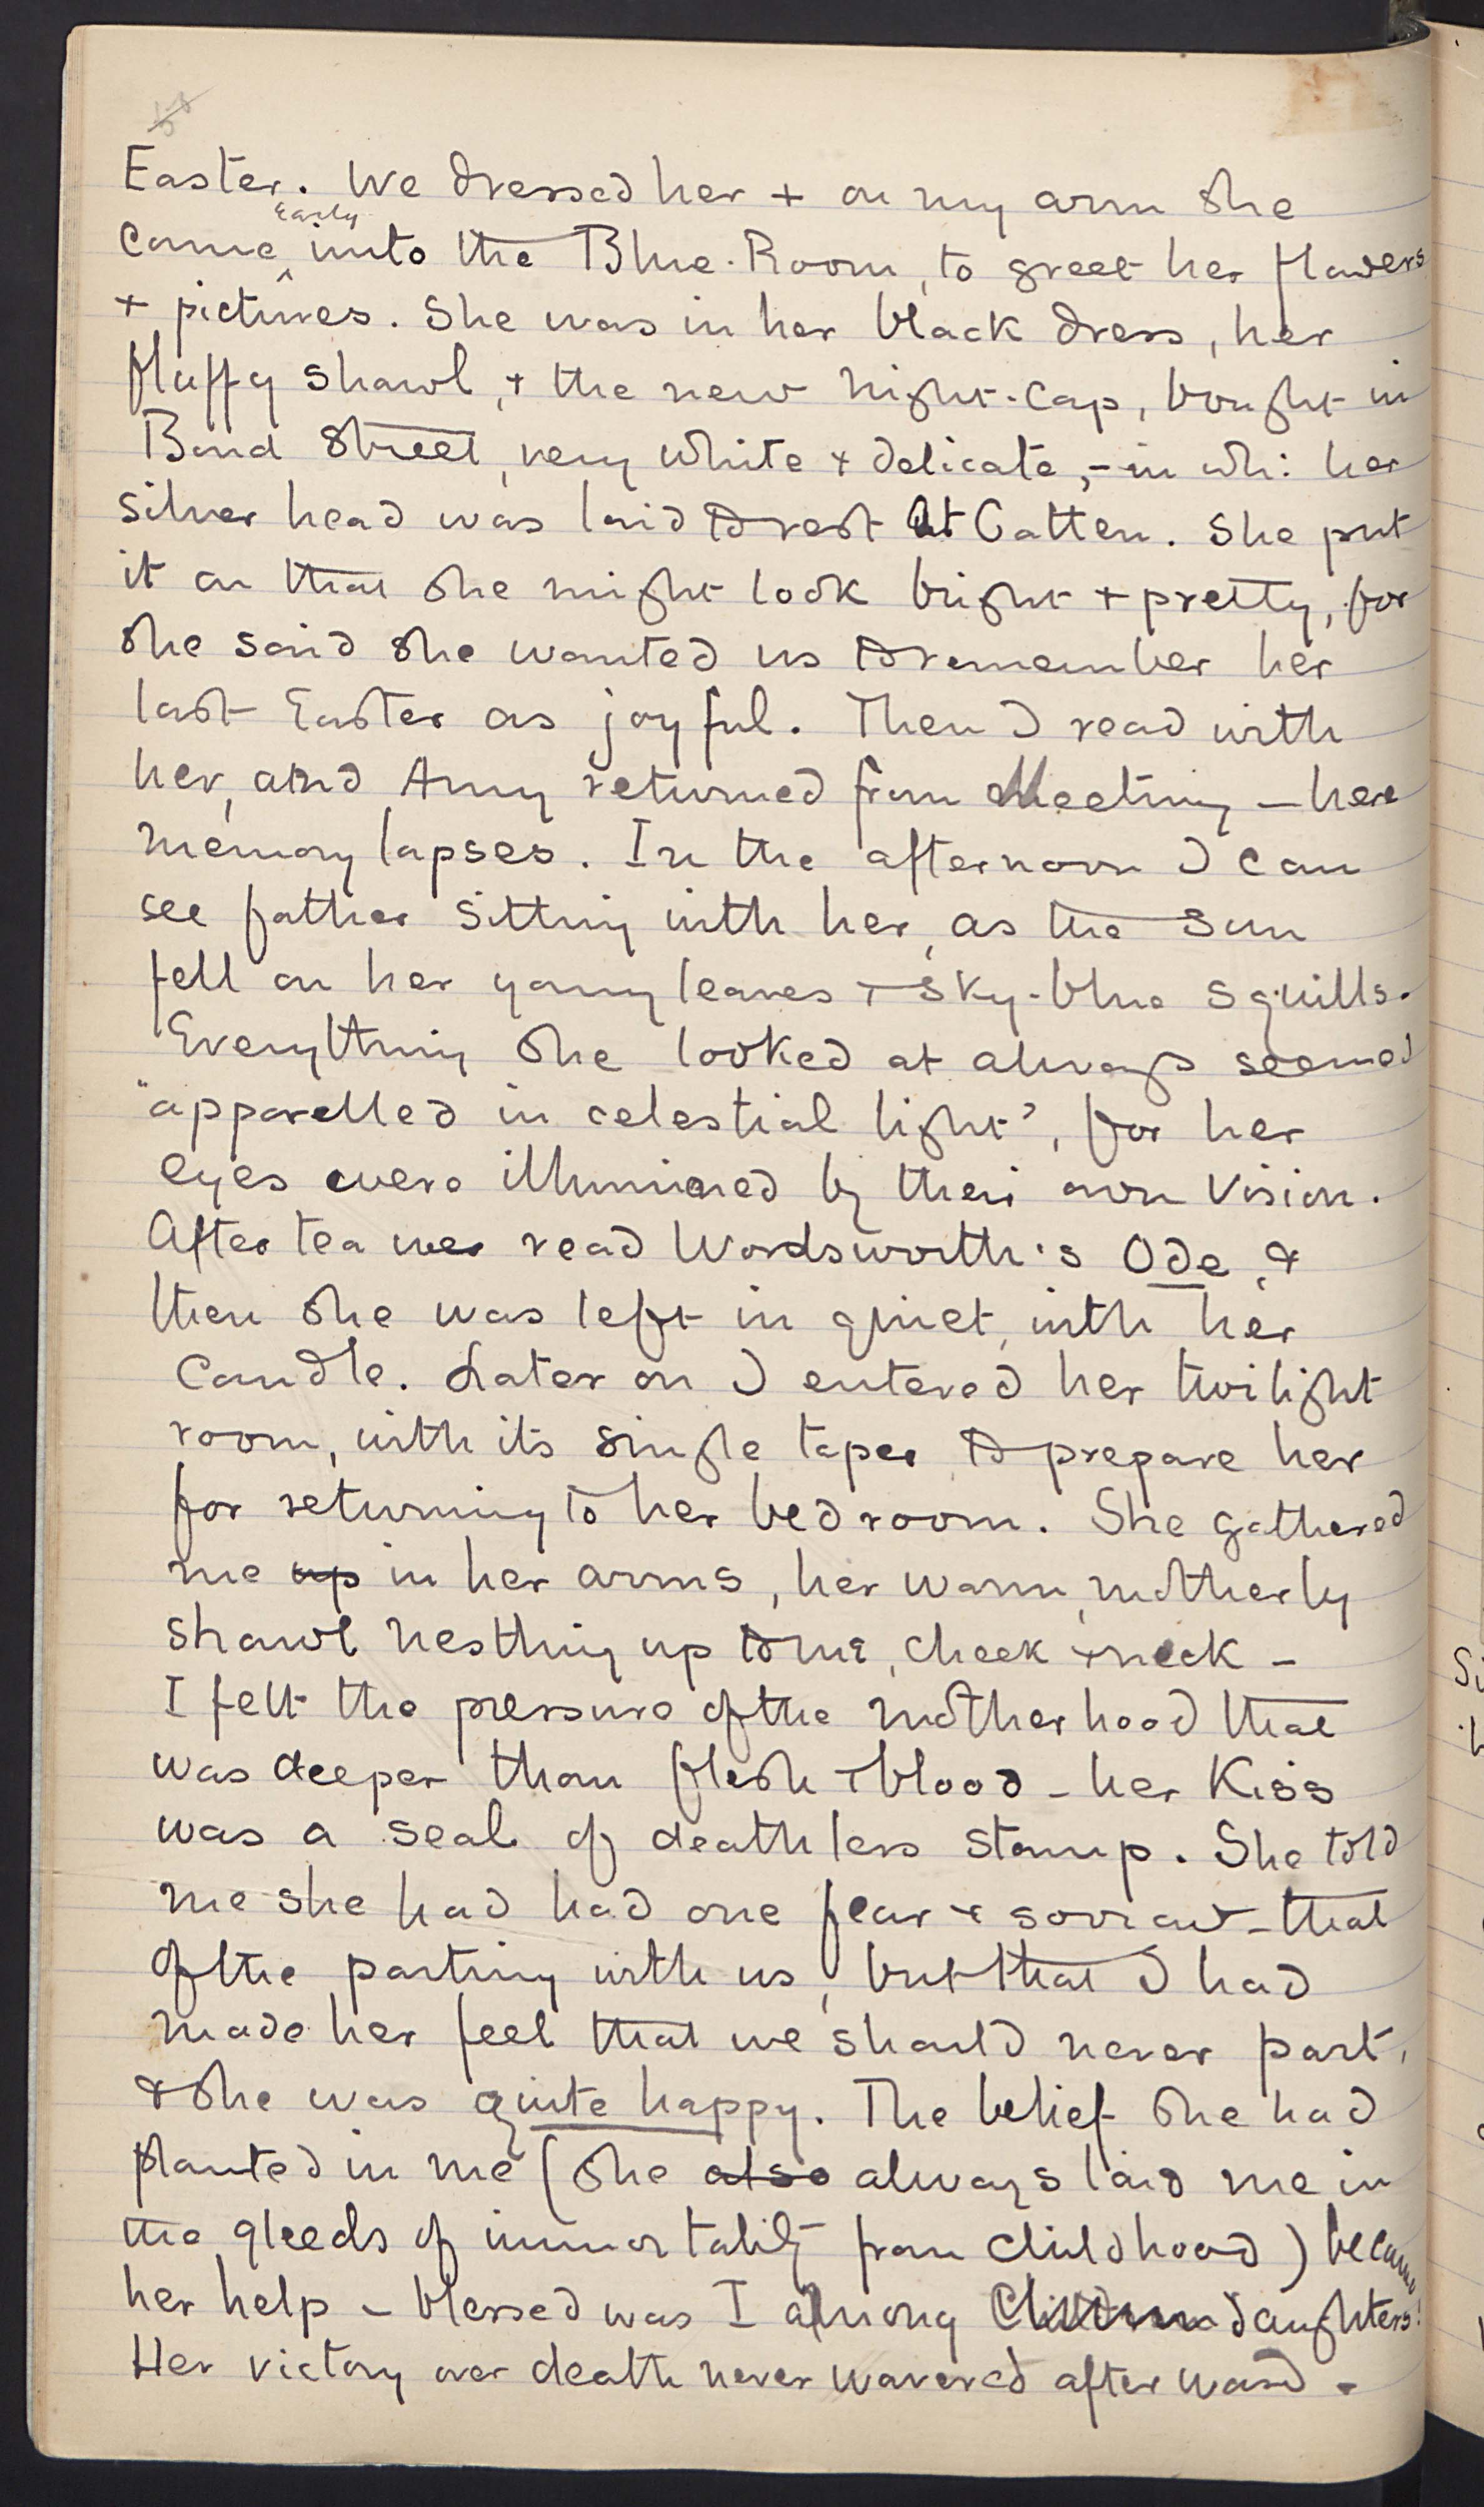 Easter. We dressed her + on my arm she
Early
came into the Blue-Room, to greet her flowers
+ pictures. She was in her black dress, her
fluffy shawl, + the new night-cap, bought in
Bond Street, very white + delicate, - in whi: her
silver head was laid to rest at Catten. She put
it on that she might look bright + pretty, for
she said she wanted us to remember her
last Easter as joyful. Then I read with
her, and Amy returned from Meeting – here
memory lapses. In the afternoon I can
see father sitting with her, as the sun
fell on her young leaves + sky-blue squills.
Everything she looked at always seemed
"apparelled in celestial light", for her
eyes were illumined by their own vision.
After tea we read Wordsworth's Ode, &
then she was left in quiet, with her
candle. Later on I entered her twilight
room, with its single taper to prepare her
for returning to her bedroom. She gathered
me up in her arms, her warm, motherly
shawl nestling up to me, cheek + neck –
I felt the pressure of the motherhood that
was deeper than flesh + blood – her kiss
was a seal of deathless stamp. She told
me she had had one fear + sorrow – that
of the parting with us, but that I had
made her feel that we should never part,
& she was quite happy. The belief she had
planted in me (she also always laid me in
the gleeds of immortality from childhood) became
her help – blessed was I among daughters!
Her victory over death never wavered afterward.